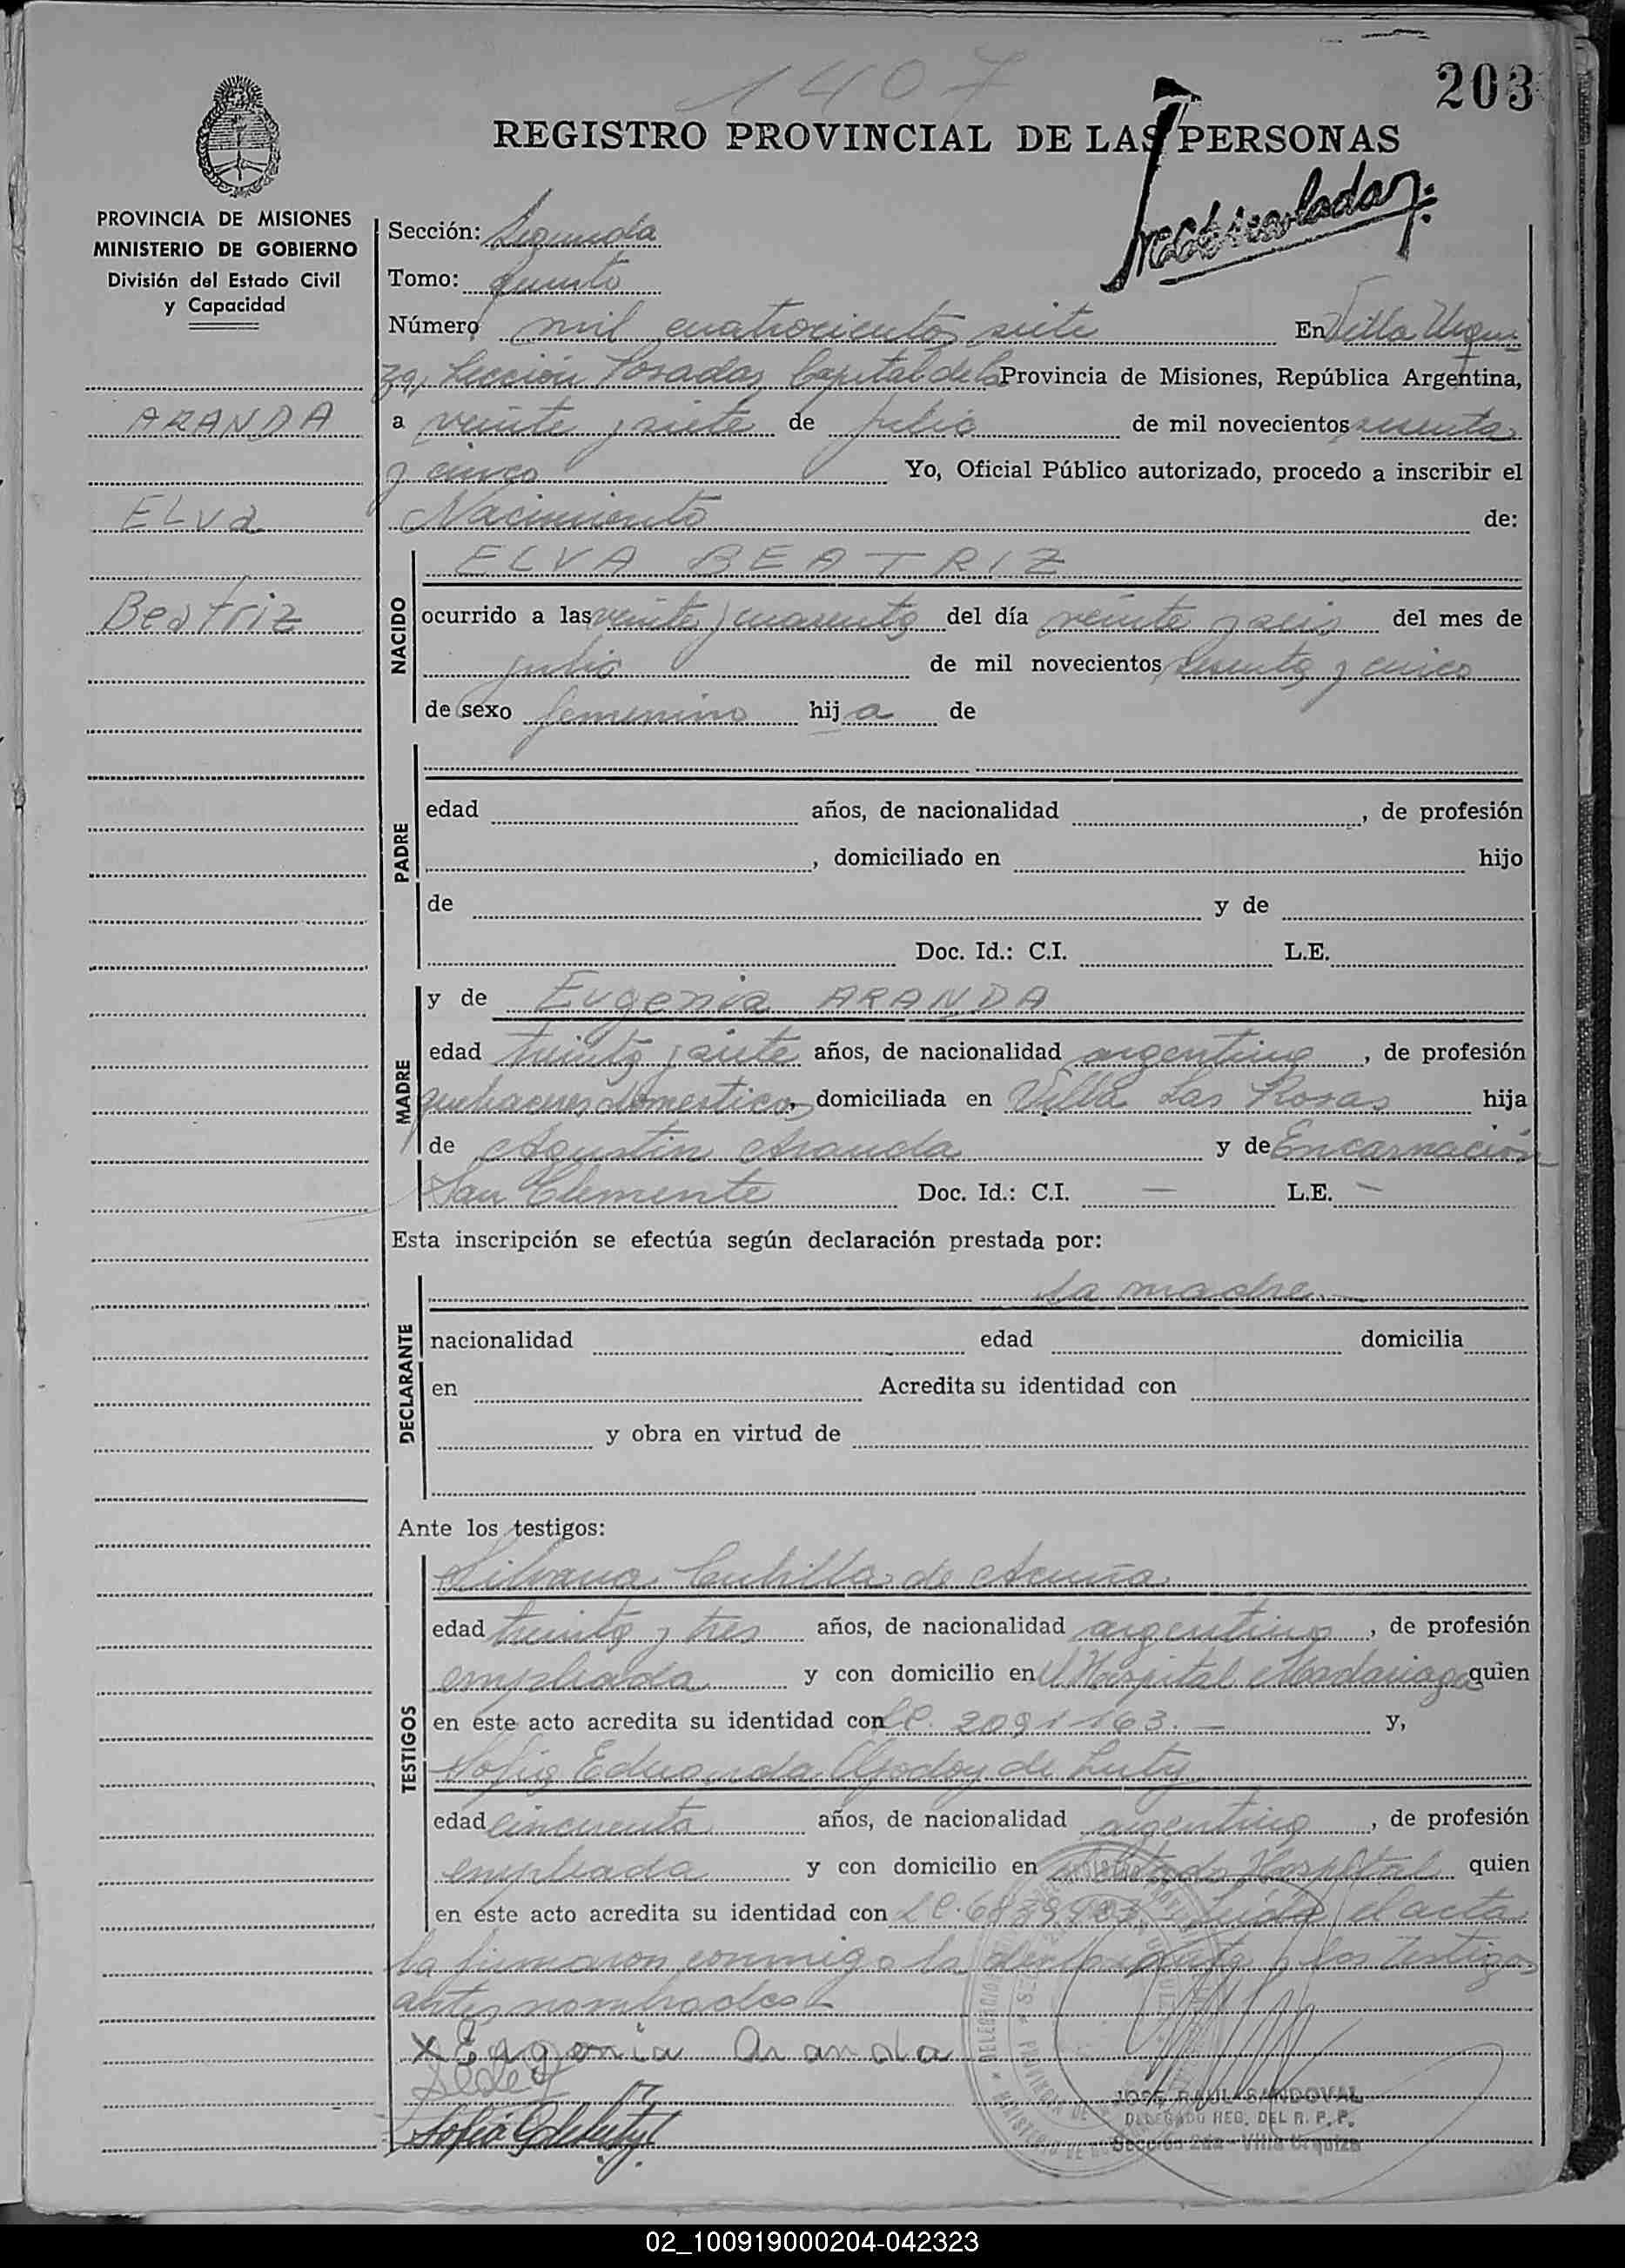 1407
203
REGISTRO PROVINCIAL DE LAS PERSONAS
PROVINCIA DE MISIONES
MINISTERIO DE GOBIERNO
División del Estado Civil
y Capacidad
Sección: Segunda
Tomo: Quinto
Número mil cuatrocientos siete En Villa Urqui-
za, Sección Posadas, Capital de la Provincia de Misiones, República Argentina,
ARANDA
a veinte y siete de julio de mil novecientos sesenta
y cinco Yo, Oficial Público autorizado, procedo a inscribir el
ELva
Nacimiento de:
ELVA BEATRIZ
Beatriz
NACIDO
ocurrido a las veinte y cuarenta del día veinte y seis del mes de
julio de mil novecientos sesenta y cinco
de sexo femenino hija de
PADRE
edad años, de nacionalidad , de profesión
, domiciliado en hijo
de y de
Doc. Id.: C.I. L.E.
MADRE
y de Eugenia ARANDA
edad treinta y siete años, de nacionalidad argentina, de profesión
quehaceres domesticos, domiciliada en Villa Las Rosas hija
de Agustin Aranda y de Encarnación
San Clemente Doc. Id.: C.I. — L.E. —
Esta inscripción se efectúa según declaración prestada por:
la madre.—
DECLARANTE
nacionalidad edad domicilia
en Acredita su identidad con
y obra en virtud de
Ante los testigos:
TESTIGOS
Silvana Cubilla de Acuña
edad treinta y tres años, de nacionalidad argentina, de profesión
empleada y con domicilio en Hospital Madariaga quien
en este acto acredita su identidad con LC. 2091163.— y,
Sofia Eduarda Godoy de Luty
edad cincuenta años, de nacionalidad argentina, de profesión
empleada y con domicilio en Hospital quien
en este acto acredita su identidad con LC. Leida el acta
la firmaron conmigo la declarante y los testigos
antes nombrados.—
x Eugenia Aranda
JOSE RAUL SANDOVAL
DELEGADO REG. DEL R. P. P.
Sección 2da - Villa Urquiza
02_100919000204-042323